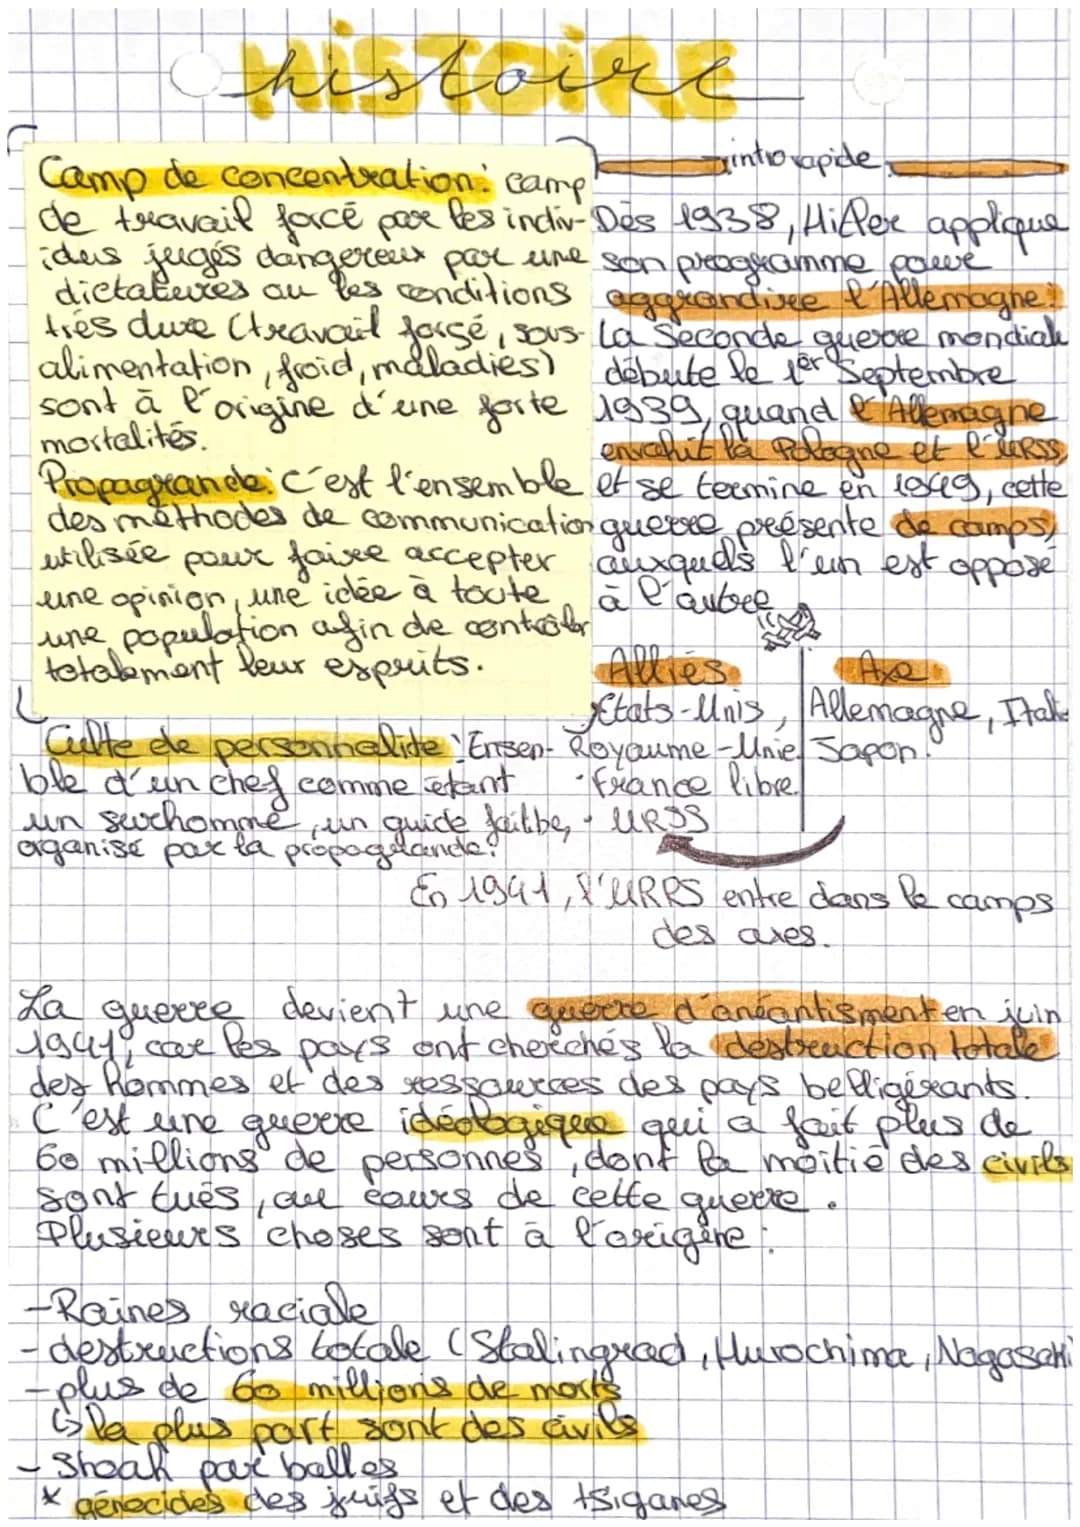 HiSTOiRE
histoire
Camp de concentration: camp
de travail forcé par les indiv-
idus jugés dangereux par une
dictatures ou les conditions
très dure (travail forçé, sous-
alimentation, froid, maladies)
sont à l'origine d'une forte
mortalités.
Propagrande: C'est l'ensemble
des méthodes de communication
utilisée pour faire accepter
une opinion, une idée à toute
une population afin de contrôler
totalement leur esprits.
Culte de personnalite: Ensem-
ble d'un chef comme étant
un surhomme, un guide
organisé par la
intro rapide
Dès 1938, Hitler applique
son programme pour
aggrandire l'Allemagne:
La Seconde guerre mondiale
débute le 1er Septembre
1939, quand l'Allemagne
envahit la Pologne et l'URSS,
et se termine en 1949, cette
guerre présente de camps,
auxquels l'un est opposé
à l'autre
Alliés
Etats-Unis,
Royaume-Unie
France libre
URSS
Axe
Allemagne, Itali
Japon.
En 1941, l'URRS entre dans le camps
des axes.
La guerre devient une guerre d'anéantisment en juin
1941, car les pays ont cherchés la destruction totale
des hommes et des ressources des pays belligérants.
C'est une guerre idéologique qui a fait plus de
60 millions de personnes, dont la moitié des civils
sont tués, au cours de cette guerre.
Plusieurs choses sont à l'origine:
-Raines raciale
-destructions totale (Stalingrad, Hurochima, Nagasaki
-plus de 60 millions de morts
↳ la plus part sont des civils
- Shoah par balles
* génocides des juifs et des tsiganes